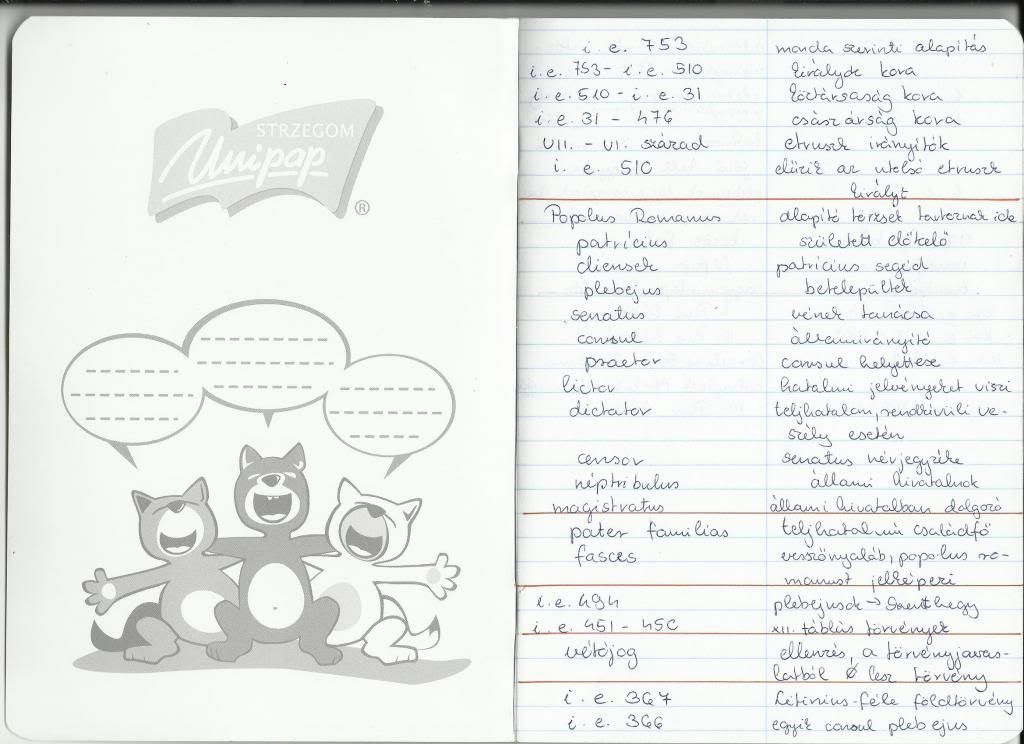 STRZEGOM
Unipap
®
i. e. 753 monda szerinti alapítás
i.e. 753- i.e. 510 királyok kora
i.e. 510 - i. e. 31 köztársaság kora
i. e. 31 - 476 császárság kora
VII. - VI. század etruszk irányítók
i. e. 510 elűzik az utolsó etruszk
királyt
Popolus Romanus alapító törzsek tartoznak ide
patrícius született előkelő
cliensek patrícius segéd
plebejus betelepültek
senatus vének tanácsa
consul államirányító
praetor consul helyettese
lictor hatalmi jelvényeket viszi
dictator teljhatalom, rendkívüli ve-
szély esetén
censor senatus névjegyzéke
néptribulus állami hivatalnok
magistratus állami hivatalban dolgozó
pater familias teljhatalmú családfő
fasces vesszőnyaláb, popolus ro-
manust jelképezi
i.e. 494 plebejusok → Szenthegy
i. e. 451 - 450 XII. táblás törvények
vétójog ellenzés, a törvényjavas-
latból Ø lesz törvény
i. e. 367 Licinius-féle földtörvény
i. e. 366 egyik consul plebejus